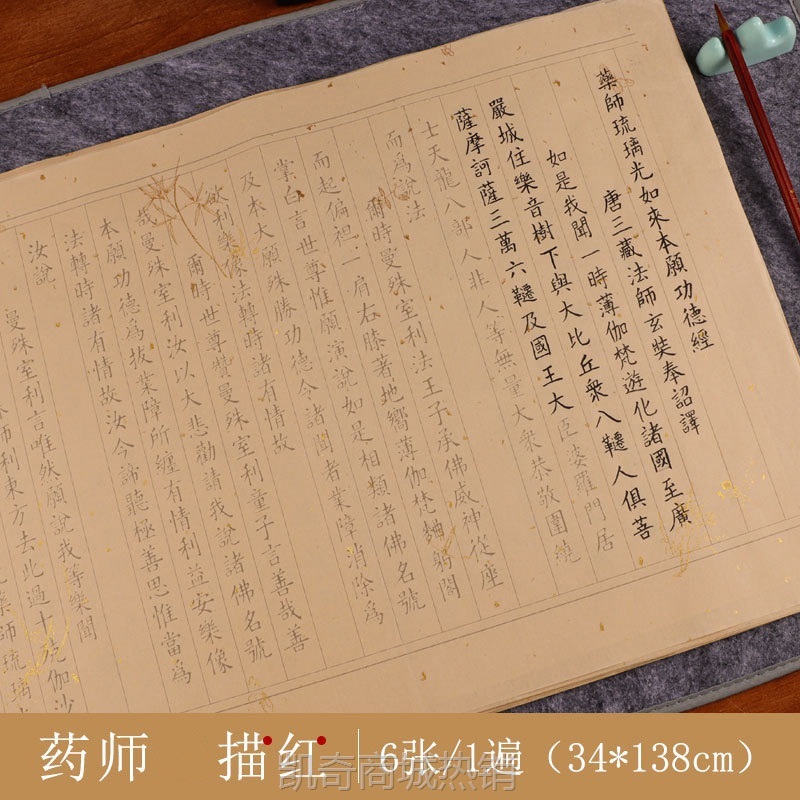 藥師琉璃光如來本願功德經
唐三藏法師玄奘奉詔譯
如是我聞一時薄伽梵遊化諸國至廣
嚴城住樂音樹下與大比丘衆八韆人俱菩
薩摩訶薩三萬六韆及國王大臣婆羅門居
士天龍八部人非人等無量大衆恭敬圍繞
而為說法
爾時曼殊室利法王子承佛威神從座
而起偏袒一肩右膝著地嚮薄伽梵麯躬閤
掌白言世尊惟願演說如是相類諸佛名號
及本大願殊勝功德令諸聞者業障消除為
欲利樂像法轉時諸有情故
爾時世尊贊曼殊室利童子言善哉善
哉曼殊室利汝以大悲勸請我說諸佛名號
本願功德為拔業障所纏有情利益安樂像
法轉時諸有情故汝今諦聽極善思惟當為
汝說
曼殊室利言唯然願說我等樂聞
師利東方去此過十殑伽沙
藥師琉璃
药师 描红 6张/1遍（34*138cm）
凯奇商城热销